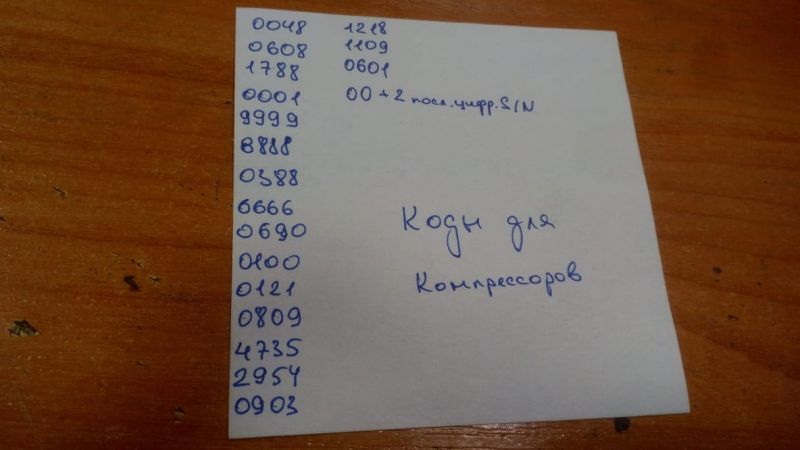 0048 1218
0608 1109
1788 0601
0001 00 + 2 посл. цифр. S/N
9999
8888
0388
6666
0690
0100
0121
0809
4735
2954
0903
Коды для
Компрессоров